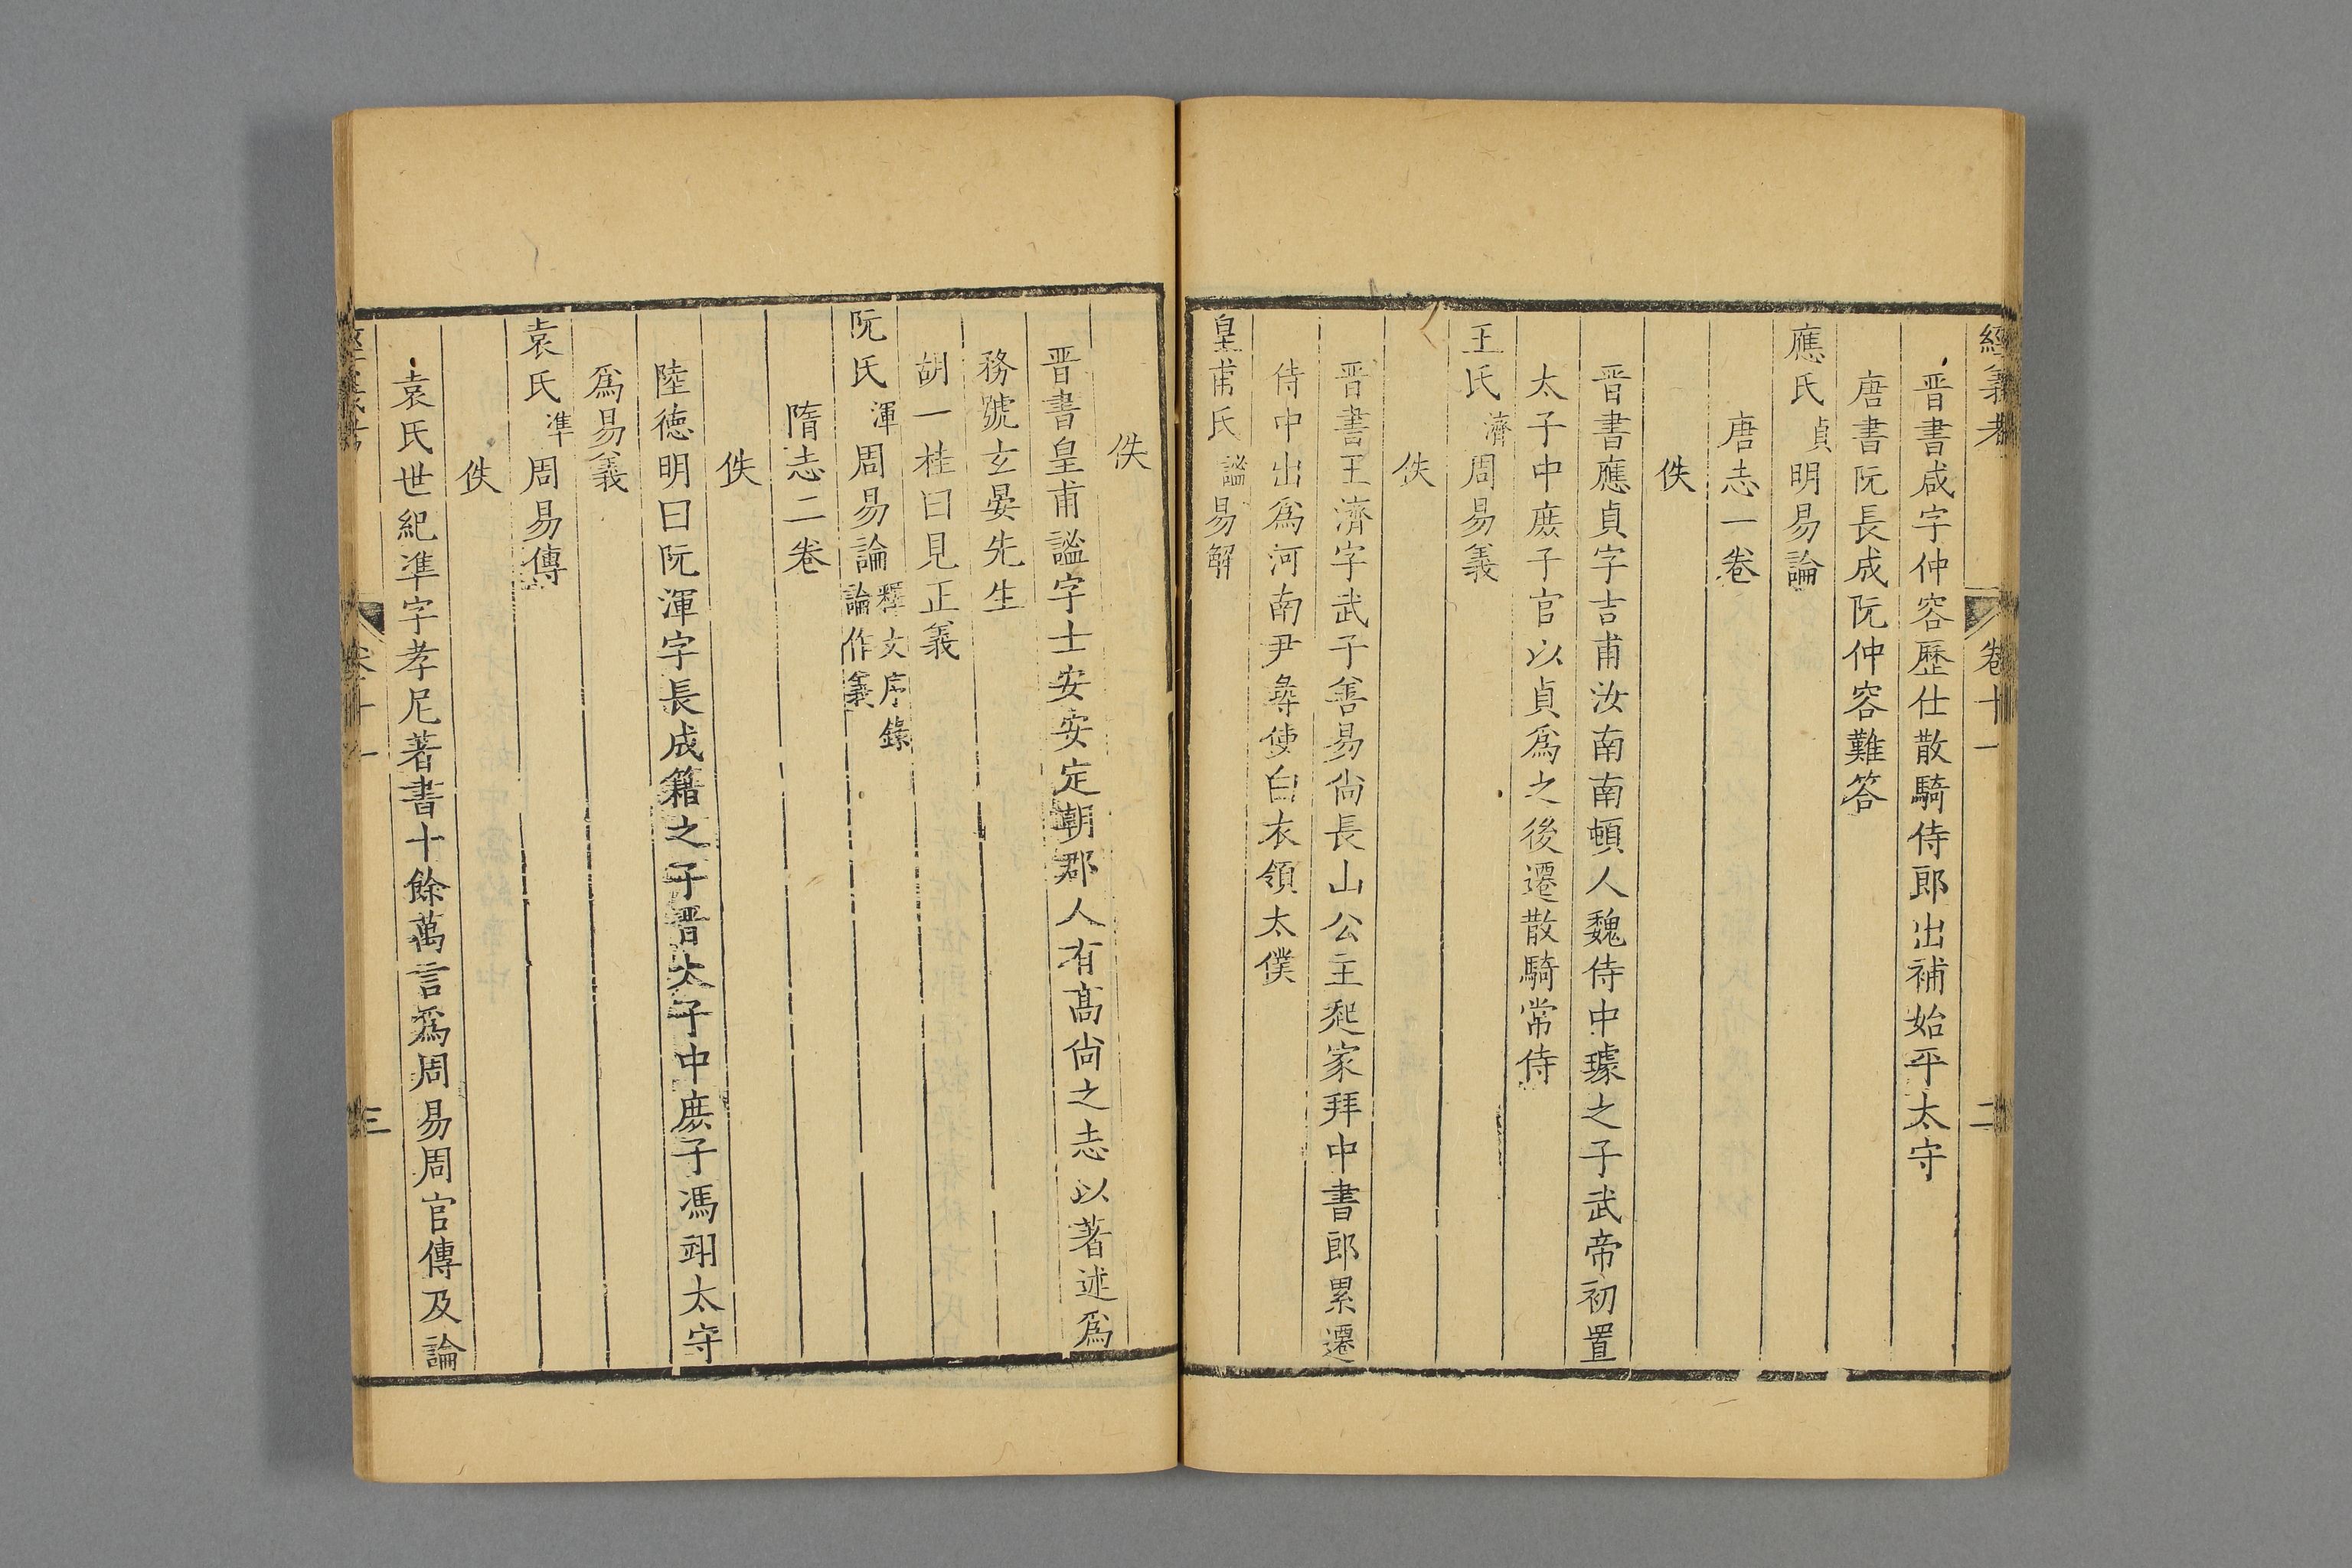 經義考 卷十一 二
晋書咸字仲容歷仕散騎侍郎出補始平太守
唐書阮長成阮仲容難答
應氏貞明易論
唐志一卷
佚
晋書應貞字吉甫汝南南頓人魏侍中璩之子武帝初置
太子中庶子官以貞爲之後遷散騎常侍
王氏濟周易義
佚
晋書王濟字武子善易尙長山公主起家拜中書郎累遷
侍中出爲河南尹尋使白衣領太僕
皇甫氏謐易解
佚
晋書皇甫謐字士安安定朝郡人有高尙之志以著述爲
務號玄晏先生
胡一桂曰見正義
阮氏渾周易論釋文序錄論作義
隋志二卷
佚
陸徳明曰阮渾字長成籍之子晋太子中庶子馮翊太守
爲易義
袁氏準周易傳
佚
袁氏世紀準字孝尼著書十餘萬言爲周易周官傳及論
經義考 卷十一 三